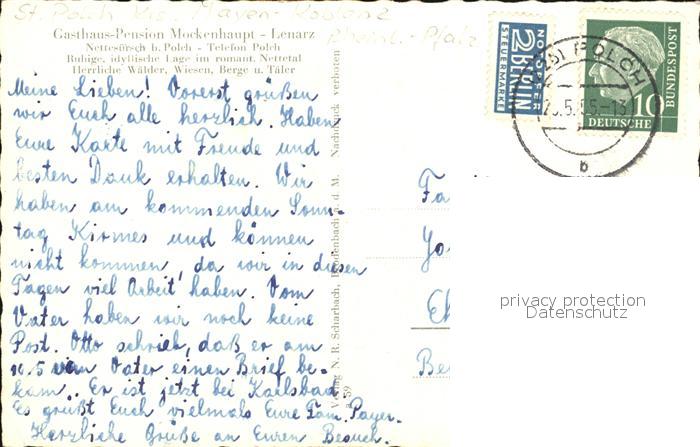 St. Polch Krs. Mayen-Koblenz
Rheinl.-Pfalz
Gasthaus-Pension Mockenhaupt - Lenarz
Nettesürsch b. Polch - Telefon Polch
Ruhige, idyllische Lage im romant. Nettetal
Herrliche Wälder, Wiesen, Berge u. Täler
Meine Lieben! Vorerst grüßen
wir Euch alle herzlich. Haben
Eure Karte mit Freude und
besten Dank erhalten. Wir
haben am kommenden Sonn-
tag Kirmes und können
nicht kommen, da wir in diesen
Tagen viel Arbeit haben. Vom
Vater haben wir noch keine
Post. Otto schrieb, daß er am
10.5 vom Vater einen Brief be-
kam. Er ist jetzt bei Karlsbad.
Es grüßt Euch vielmals Eure Fam. Payer.
Herzliche Grüße an Euren Besuch.
Verlag N. R. Scharbach, a. d. M.
Nachdruck verboten
a 59
NOTOPFER
2 BERLIN
STEUERMARKE
POLCH
.5.55.-13
b
10
DEUTSCHE
BUNDESPOST
Fa
Eh
Be
privacy protection
Datenschutz